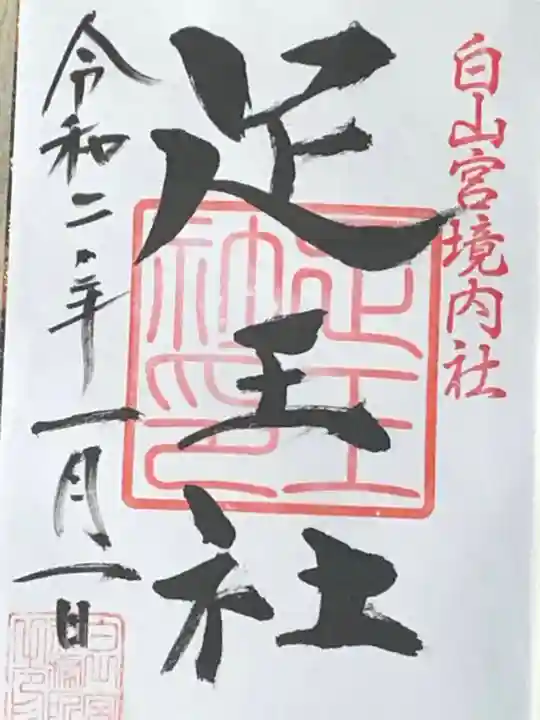 白山宮境内社
足王社
令和二年一月一日